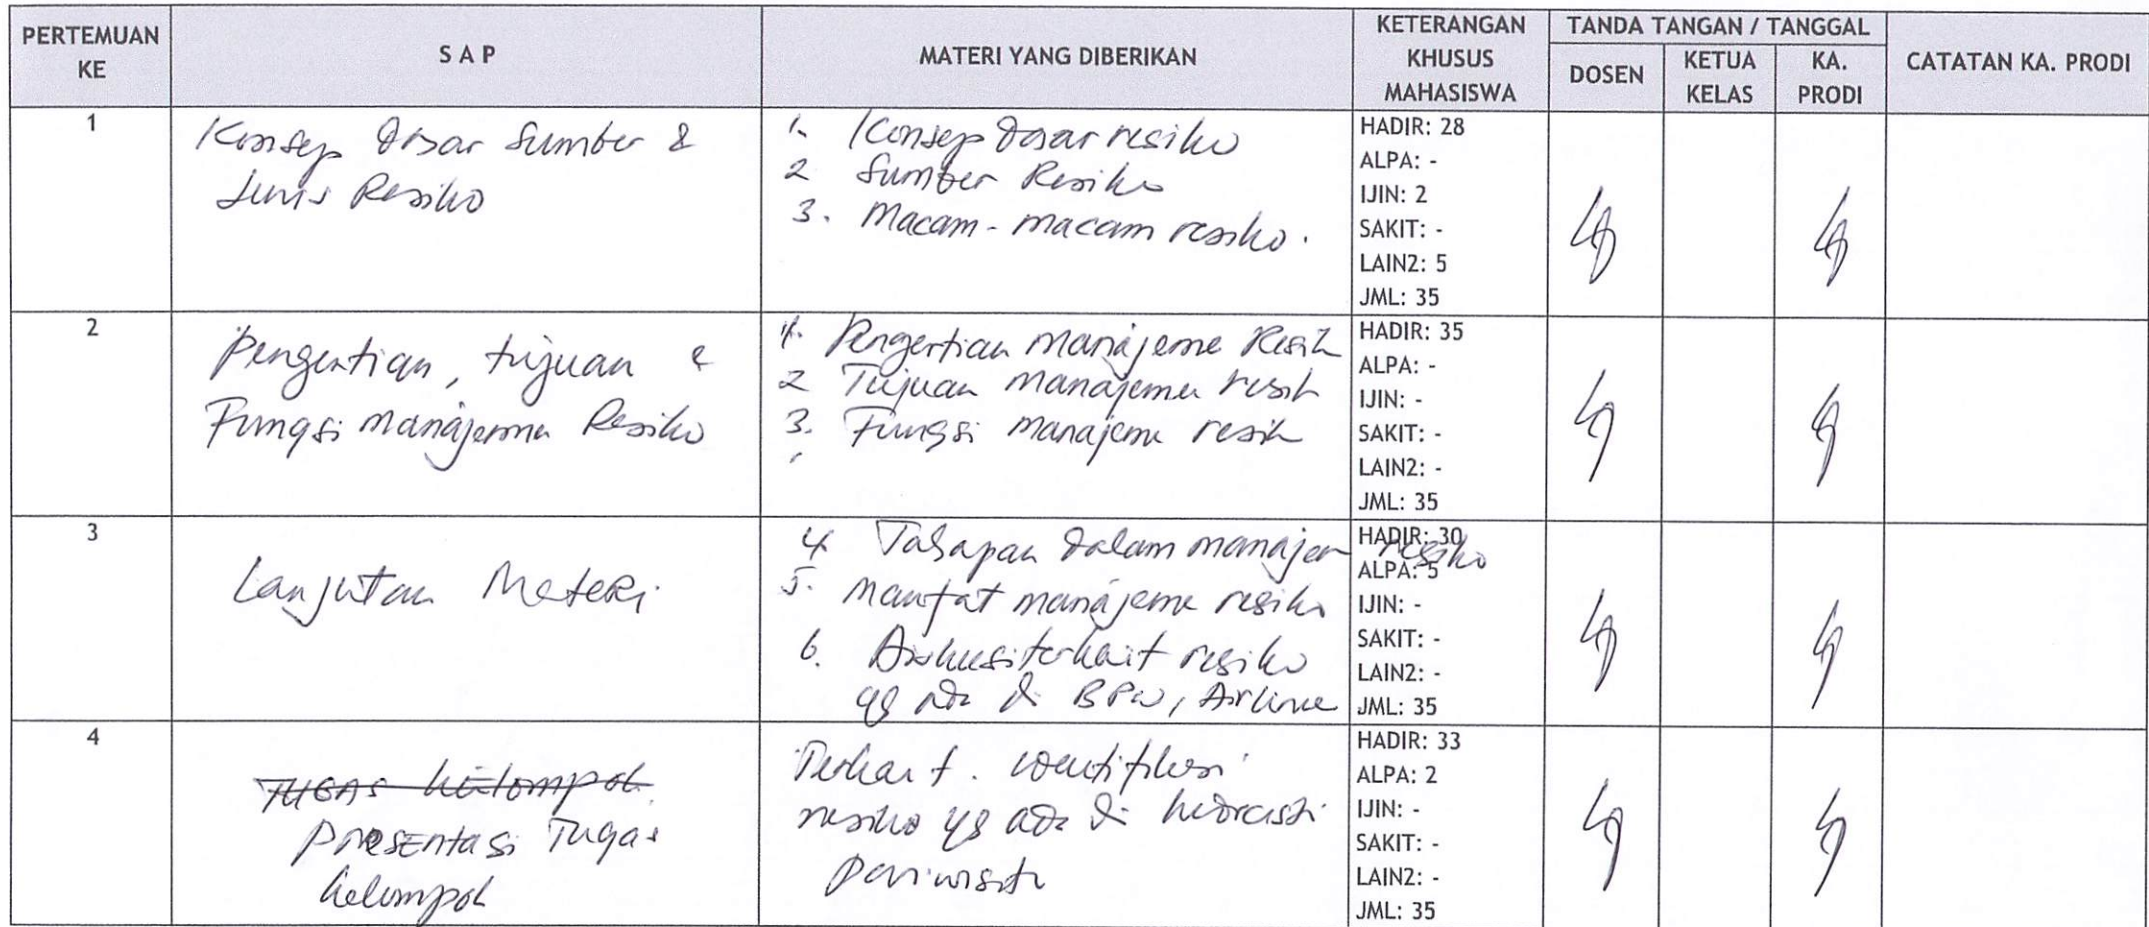 PERTEMUAN KE
S A P
MATERI YANG DIBERIKAN
KETERANGAN KHUSUS MAHASISWA
TANDA TANGAN / TANGGAL
DOSEN
KETUA KELAS
KA. PRODI
CATATAN KA. PRODI
1
Konsep dasar Sumber &
Jenis Resiko
1. Konsep dasar resiko
2 Sumber Resiko
3. Macam-macam resiko.
HADIR: 28
ALPA: -
IJIN: 2
SAKIT: -
LAIN2: 5
JML: 35
2
Pengertian, tujuan &
Fungsi manajemen Resiko
1. Pengertian Manajeme Resik
2 Tujuan manajemen resik
3. Fungsi manajeme resik
HADIR: 35
ALPA: -
IJIN: -
SAKIT: -
LAIN2: -
JML: 35
3
Lanjutan Materi
4 Tahapan dalam manajen resiko
5. manfat manajeme resiko
6. Diskusi terkait resiko
yg ada di BPW, Airline
HADIR: 30
ALPA: 5
IJIN: -
SAKIT: -
LAIN2: -
JML: 35
4
TUGAS kelompok
Presentasi Tugas
kelompok
Terkait. identifikasi
resiko yg ada di
pariwisata
HADIR: 33
ALPA: 2
IJIN: -
SAKIT: -
LAIN2: -
JML: 35